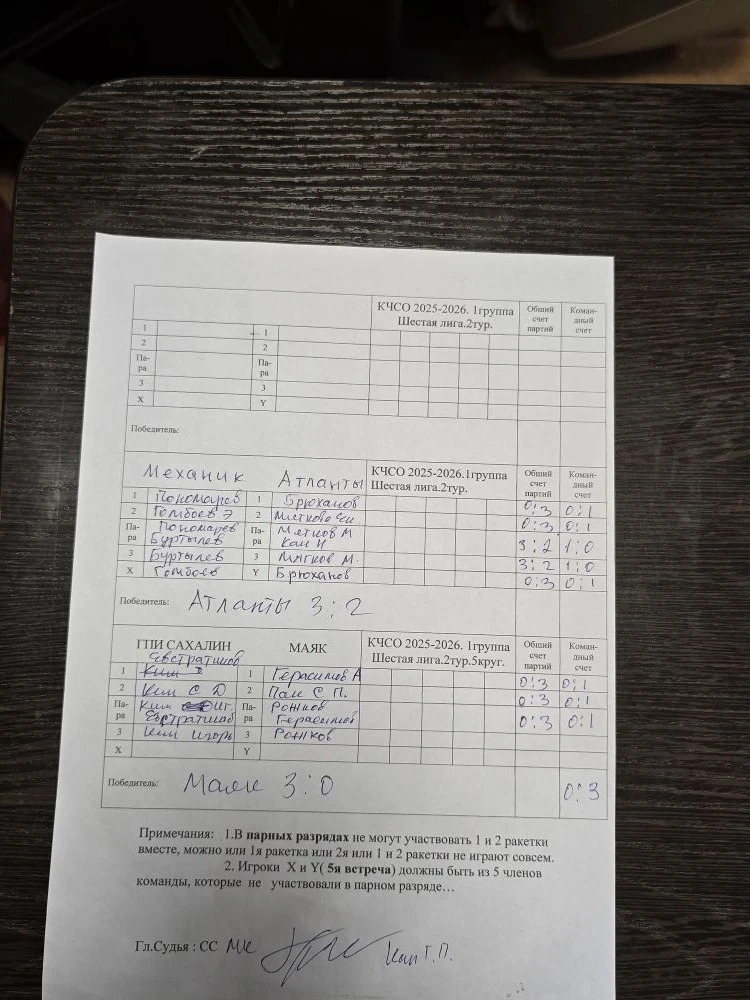 КЧСО 2025-2026. 1группа
Шестая лига.2тур.
Общий счет партий
Коман-дный счет
1 1
2 2
Па-ра Па-ра
3 3
X Y
Победитель:
Механик Атланты КЧСО 2025-2026.1группа
Шестая лига.2тур.
Общий счет партий
Коман-дный счет
1 Пономарев 1 Брюханов 0:3 0:1
2 Гомбоев Э 2 0:3 0:1
Па-ра Пономарев Буртылев Па-ра Мягков М Кан Н 3:2 1:0
3 Буртылев 3 Мягков М. 3:2 1:0
X Гомбоев Y Брюханов 0:3 0:1
Победитель: Атланты 3:2
ГПИ САХАЛИН МАЯК КЧСО 2025-2026. 1группа
Шестая лига.2тур.5круг.
Общий счет партий
Коман-дный счет
Евстратиов
1 1 Герасимов А 0:3 0:1
2 Ким С Д 2 Пак С П. 0:3 0:1
Па-ра Ким Иг. Евстратиов Па-ра Рожков Герасимов 0:3 0:1
3 Ким Игорь 3 Рожков
X Y
Победитель: Маяк 3:0 0:3
Примечания: 1.В парных разрядах не могут участвовать 1 и 2 ракетки
вместе, можно или 1я ракетка или 2я или 1 и 2 ракетки не играют совсем.
2. Игроки X и Y( 5я встреча) должны быть из 5 членов
команды, которые не участвовали в парном разряде…
Гл.Судья : СС МК Кан Г.П.